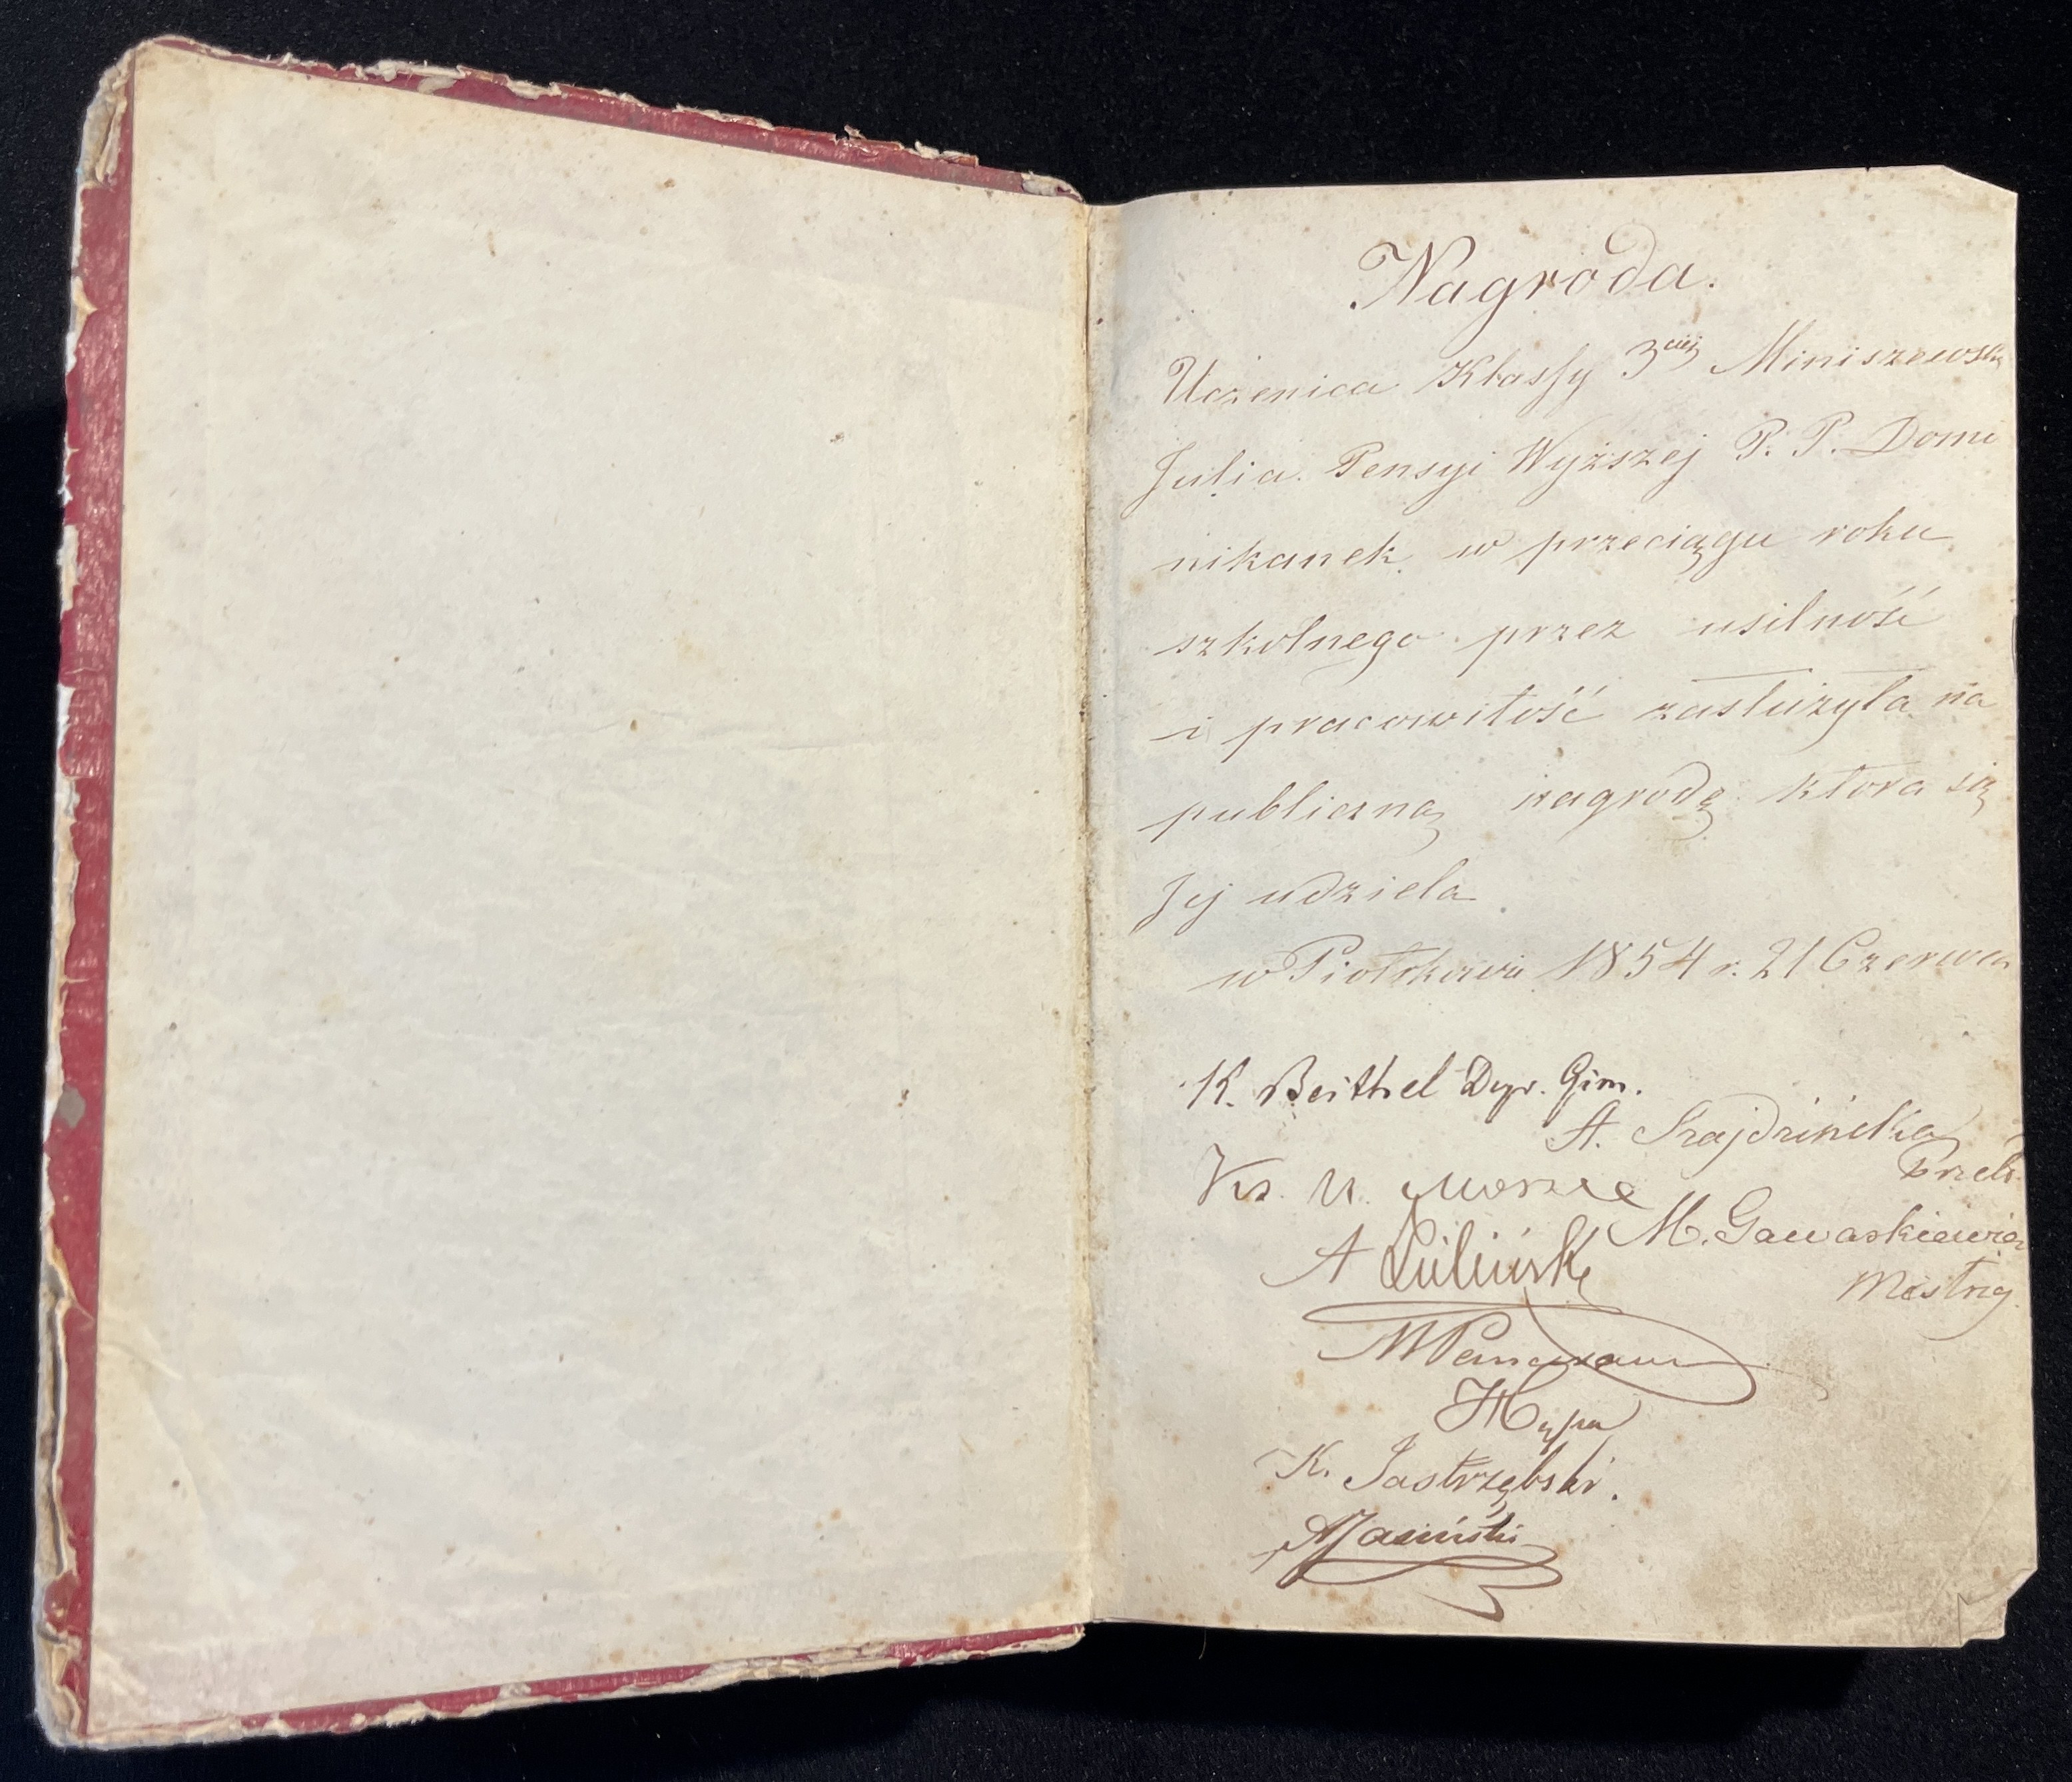 Nagroda.
Uczenica Klassy 3ciej Miniszewska
Julia. Pensyi Wyższej P. P. Domi
nikanek w przeciągu roku
szkolnego przez usilność
i pracowitość zasłużyła na
publiczną nagrodę która się
Jej udziela
w Piotrkowie 1854 r. 21 Czerwca
K. Beithel Dyr. Gim.
A. Szajdzińska
Przeł.
Ks. U.
M. Gawaskiewicz
A Luliński
Mistrzy.
K. Jastrzębski.
AJasiński